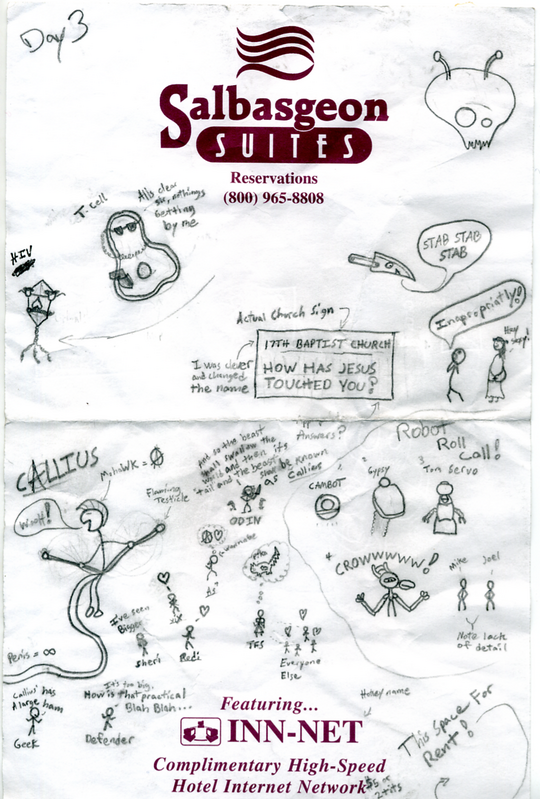 Day 3
Salbasgeon
SUITES
Reservations
(800) 965-8808
T. cell
All's clear
sir, nothings
Getting
by me
HIV
STAB STAB
STAB
Inapropriatly!
Hey
sexy!
Actual Church Sign
17TH BAPTIST CHURCH
HOW HAS JESUS
TOUCHED YOU?
I was clever
and changed
the name
Answers?
CALLIUS
MohaWK =
Flaming
Testicle
Woot!
the beast
shall swallow the
world and then its
tail and the beast
shall be known
as Callius
ODIN
Robot
Roll
Call!
CAMBOT
Gypsy
3 Tom Servo
4 CROWWWWW!
Mike Joel
Note lack
of detail
I've seen
Bigger
Sheri
Redi
TFS
Everyone
Else
Penis = ∞
Callius' has
A large ham
Geek
It's too big,
How is that practical
Blah Blah...
Defender
Featuring...
INN-NET
Complimentary High-Speed
Hotel Internet Network
name
This Space For
Rent!